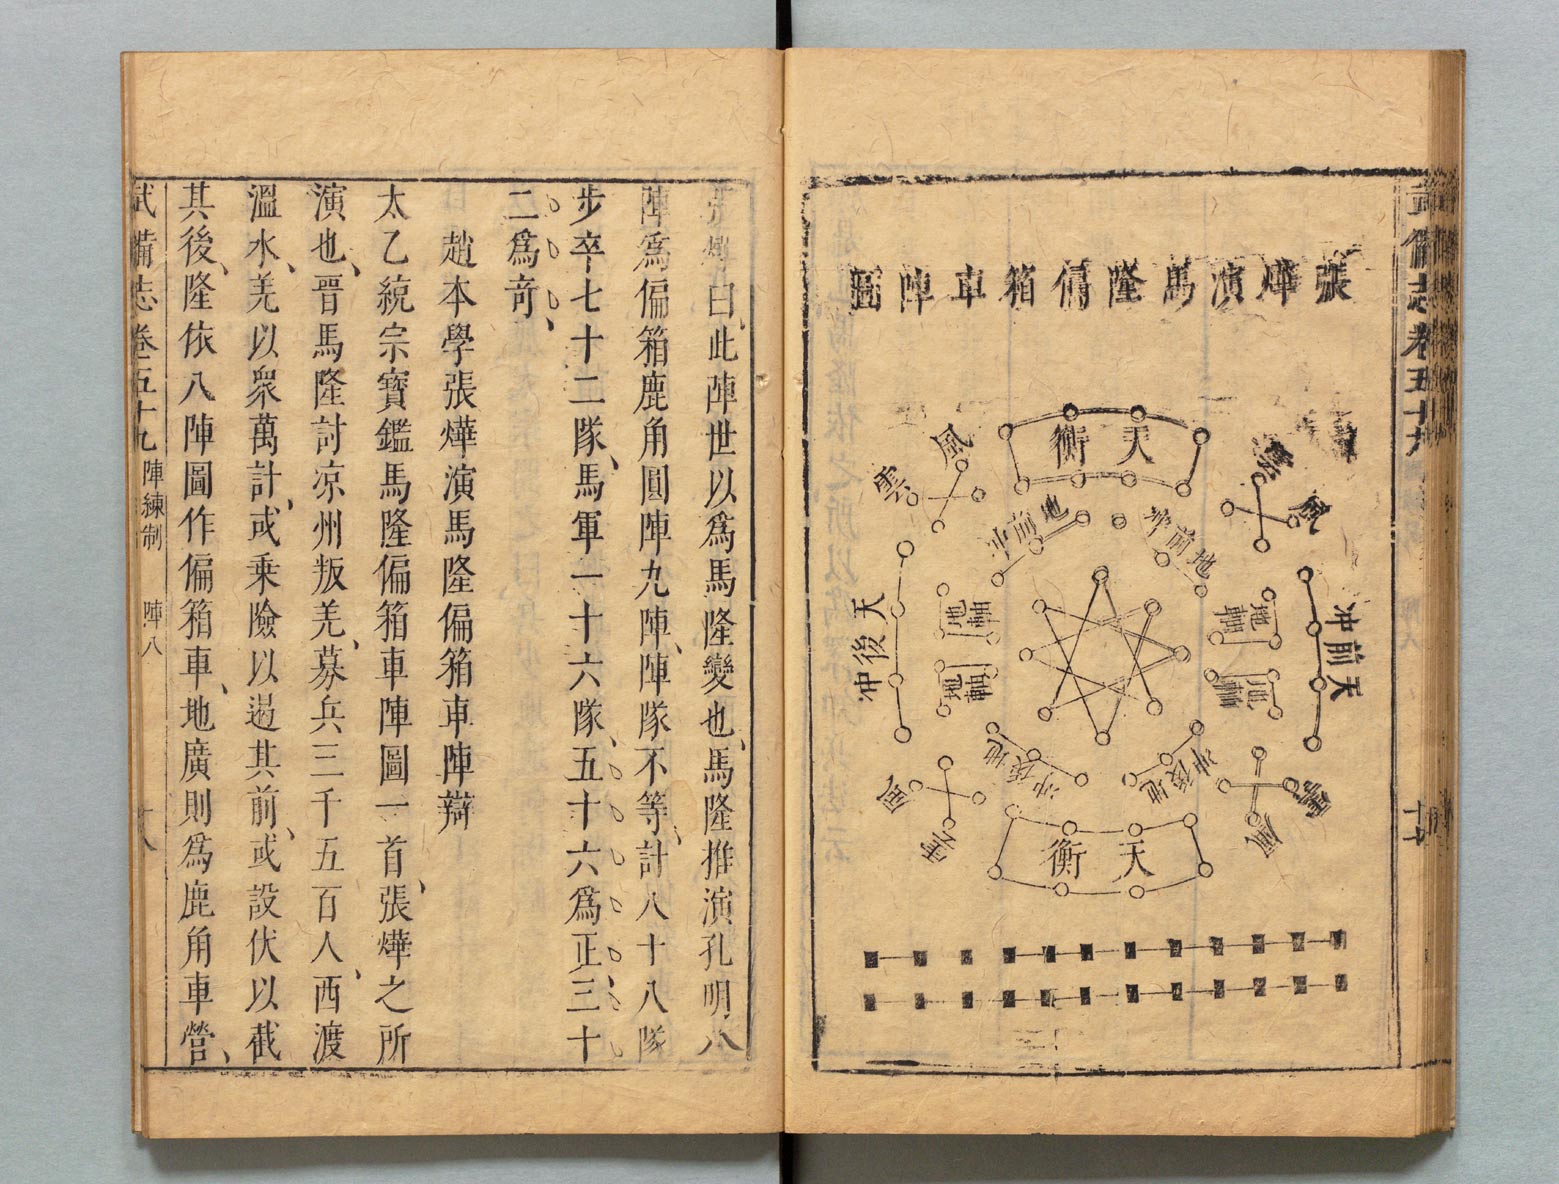 武備志卷五十九
張燁演馬隆偏箱車陣圖
天衡
風
雲
風
地前冲
地前
天前冲
天後冲
地軸
地軸
地軸
地軸
地後冲
地後冲
風
雲
雲
風
天衡
張燁曰此陣世以爲馬隆變也馬隆推演孔明八
陣爲偏箱鹿角圓陣九陣陣隊不等計八十八隊
步卒七十二隊馬軍一十六隊五十六爲正三十
二爲竒
趙本學張燁演馬隆偏箱車陣辯
太乙統宗寶鑑馬隆偏箱車陣圖一首張燁之所
演也晉馬隆討凉州叛羌募兵三千五百人西渡
溫水羌以衆萬計或乗險以遏其前或設伏以截
其後隆依八陣圖作偏箱車地廣則爲鹿角車營
武備志卷五十九 陣練制 陣八 十八